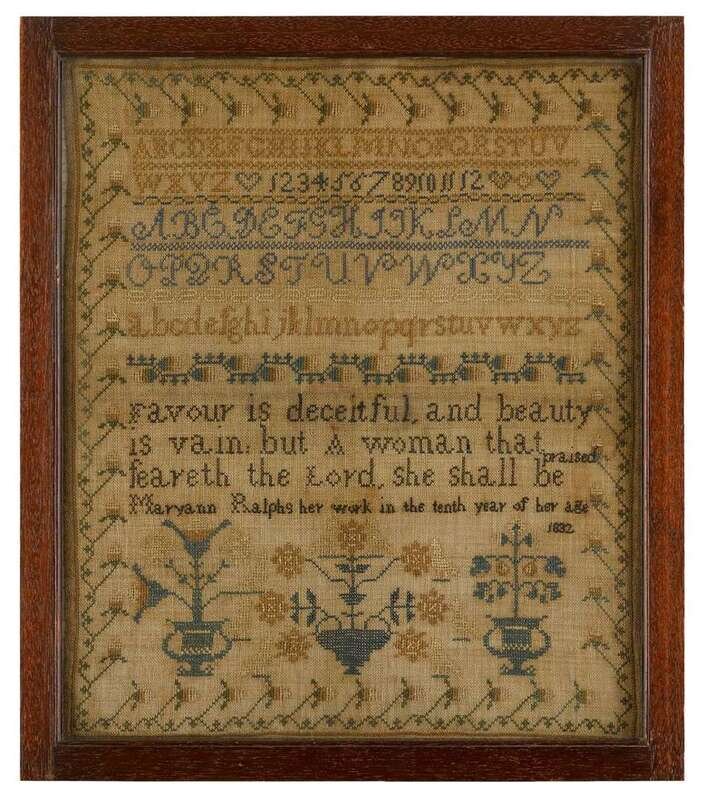 ABCDEFGHIJKLMNOPQRSTUV
WXYZ 123456789101112
ABCDEFGHIJKLMN
OPQRSTUVWXYZ
abcdefghijklmnopqrstuvwxyz
Favour is deceitful, and beauty
is vain: but A woman that
feareth the Lord, she shall be praised
Maryann Ralphs her work in the tenth year of her age
1832